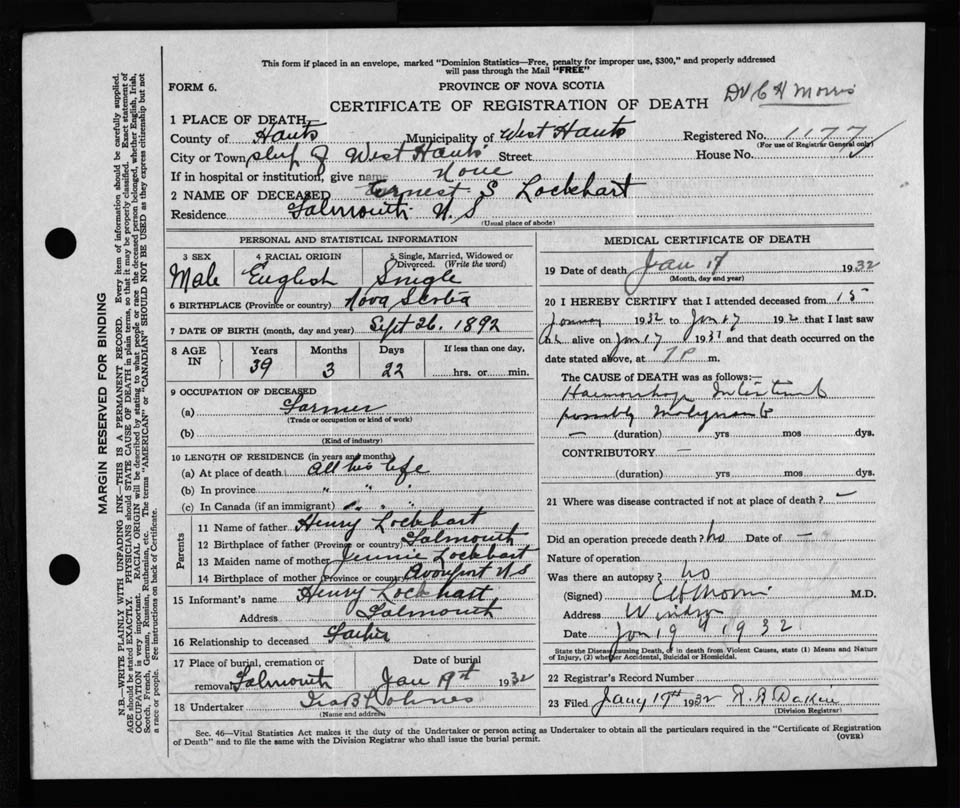 This form if placed in an envelope, marked "Dominion Statistics—Free, penalty for improper use, $300," and properly addressed
will pass through the Mail "FREE"
FORM 6.
PROVINCE OF NOVA SCOTIA
CERTIFICATE OF REGISTRATION OF DEATH
Dr C H Morris
1 PLACE OF DEATH
County of Hants Municipality of West Hants Registered No. 1177
(For use of Registrar General only)
City or Town of West Hants Street House No.
If in hospital or institution, give name None
2 NAME OF DECEASED Ernest S Lockhart
Residence Falmouth N.S
(Usual place of abode)
PERSONAL AND STATISTICAL INFORMATION
3 SEX 4 RACIAL ORIGIN 5 Single, Married, Widowed or
Divorced. (Write the word)
Male English Single
6 BIRTHPLACE (Province or country) Nova Scotia
7 DATE OF BIRTH (month, day and year) Sept 26. 1892
8 AGE IN Years Months Days If less than one day,
39 3 22 hrs. or min.
9 OCCUPATION OF DECEASED
(a) Farmer
(Trade or occupation or kind of work)
(b)
(Kind of industry)
10 LENGTH OF RESIDENCE (in years and months)
(a) At place of death All his life
(b) In province " " "
(c) In Canada (if an immigrant) " " "
Parents
11 Name of father Henry Lockhart
12 Birthplace of father (Province or country) Falmouth
13 Maiden name of mother Jennie Lockhart
14 Birthplace of mother (Province or country) Avonport N.S
15 Informant's name Henry Lockhart
Address Falmouth
16 Relationship to deceased Father
17 Place of burial, cremation or Date of burial
removal Falmouth Jan 19th 1932
18 Undertaker Ira B Lohnes
(Name and address)
MEDICAL CERTIFICATE OF DEATH
19 Date of death Jan 17 1932
(Month, day and year)
20 I HEREBY CERTIFY that I attended deceased from 15
January 1932 to Jan 17 192 that I last saw
h alive on Jan 17 193 and that death occurred on the
date stated above, at 7 P m.
The CAUSE of DEATH was as follows:—
Haemorrhage Intestinal
possibly Malignant
— (duration) yrs mos dys.
CONTRIBUTORY —
(duration) yrs mos dys.
21 Where was disease contracted if not at place of death? —
Did an operation precede death? no Date of —
Nature of operation
Was there an autopsy? no
(Signed) C H Morris M.D.
Address Windsor
Date Jan 19 1932
State the Disease causing Death, or in death from Violent Causes, state (1) Means and Nature
of Injury, (2) whether Accidental, Suicidal or Homicidal.
22 Registrar's Record Number
23 Filed Jany 19th 1932
(Division Registrar)
Sec. 46—Vital Statistics Act makes it the duty of the Undertaker or person acting as Undertaker to obtain all the particulars required in the "Certificate of Registration
of Death" and to file the same with the Division Registrar who shall issue the burial permit. (OVER)
MARGIN RESERVED FOR BINDING
N.B.—WRITE PLAINLY WITH UNFADING INK—THIS IS A PERMANENT RECORD. Every item of information should be carefully supplied.
AGE should be stated EXACTLY. PHYSICIANS should STATE CAUSE OF DEATH in plain terms, so that it may be properly classified. Exact statement of
OCCUPATION is very important. RACIAL ORIGIN will be described by stating to what people or race the deceased person belonged, whether English, Irish,
Scotch, French, German, Russian, Ruthenian, etc. The terms "AMERICAN" or "CANADIAN" SHOULD NOT BE USED as they express citizenship but not
a race or people. Fee instructions on back of Certificate.